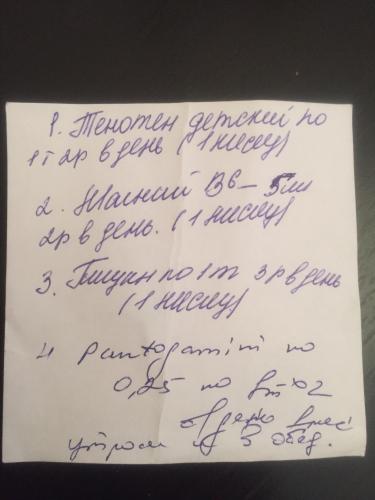 1. Тенотен детский по
1т 2р в день (1 месяц)
2. Магний B6 – 5мл
2р в день. (1 месяц)
3. по 1т 3р в день
(1 месяц)
4 Pantogamini по
0,25 по x 2
утром и в обед.